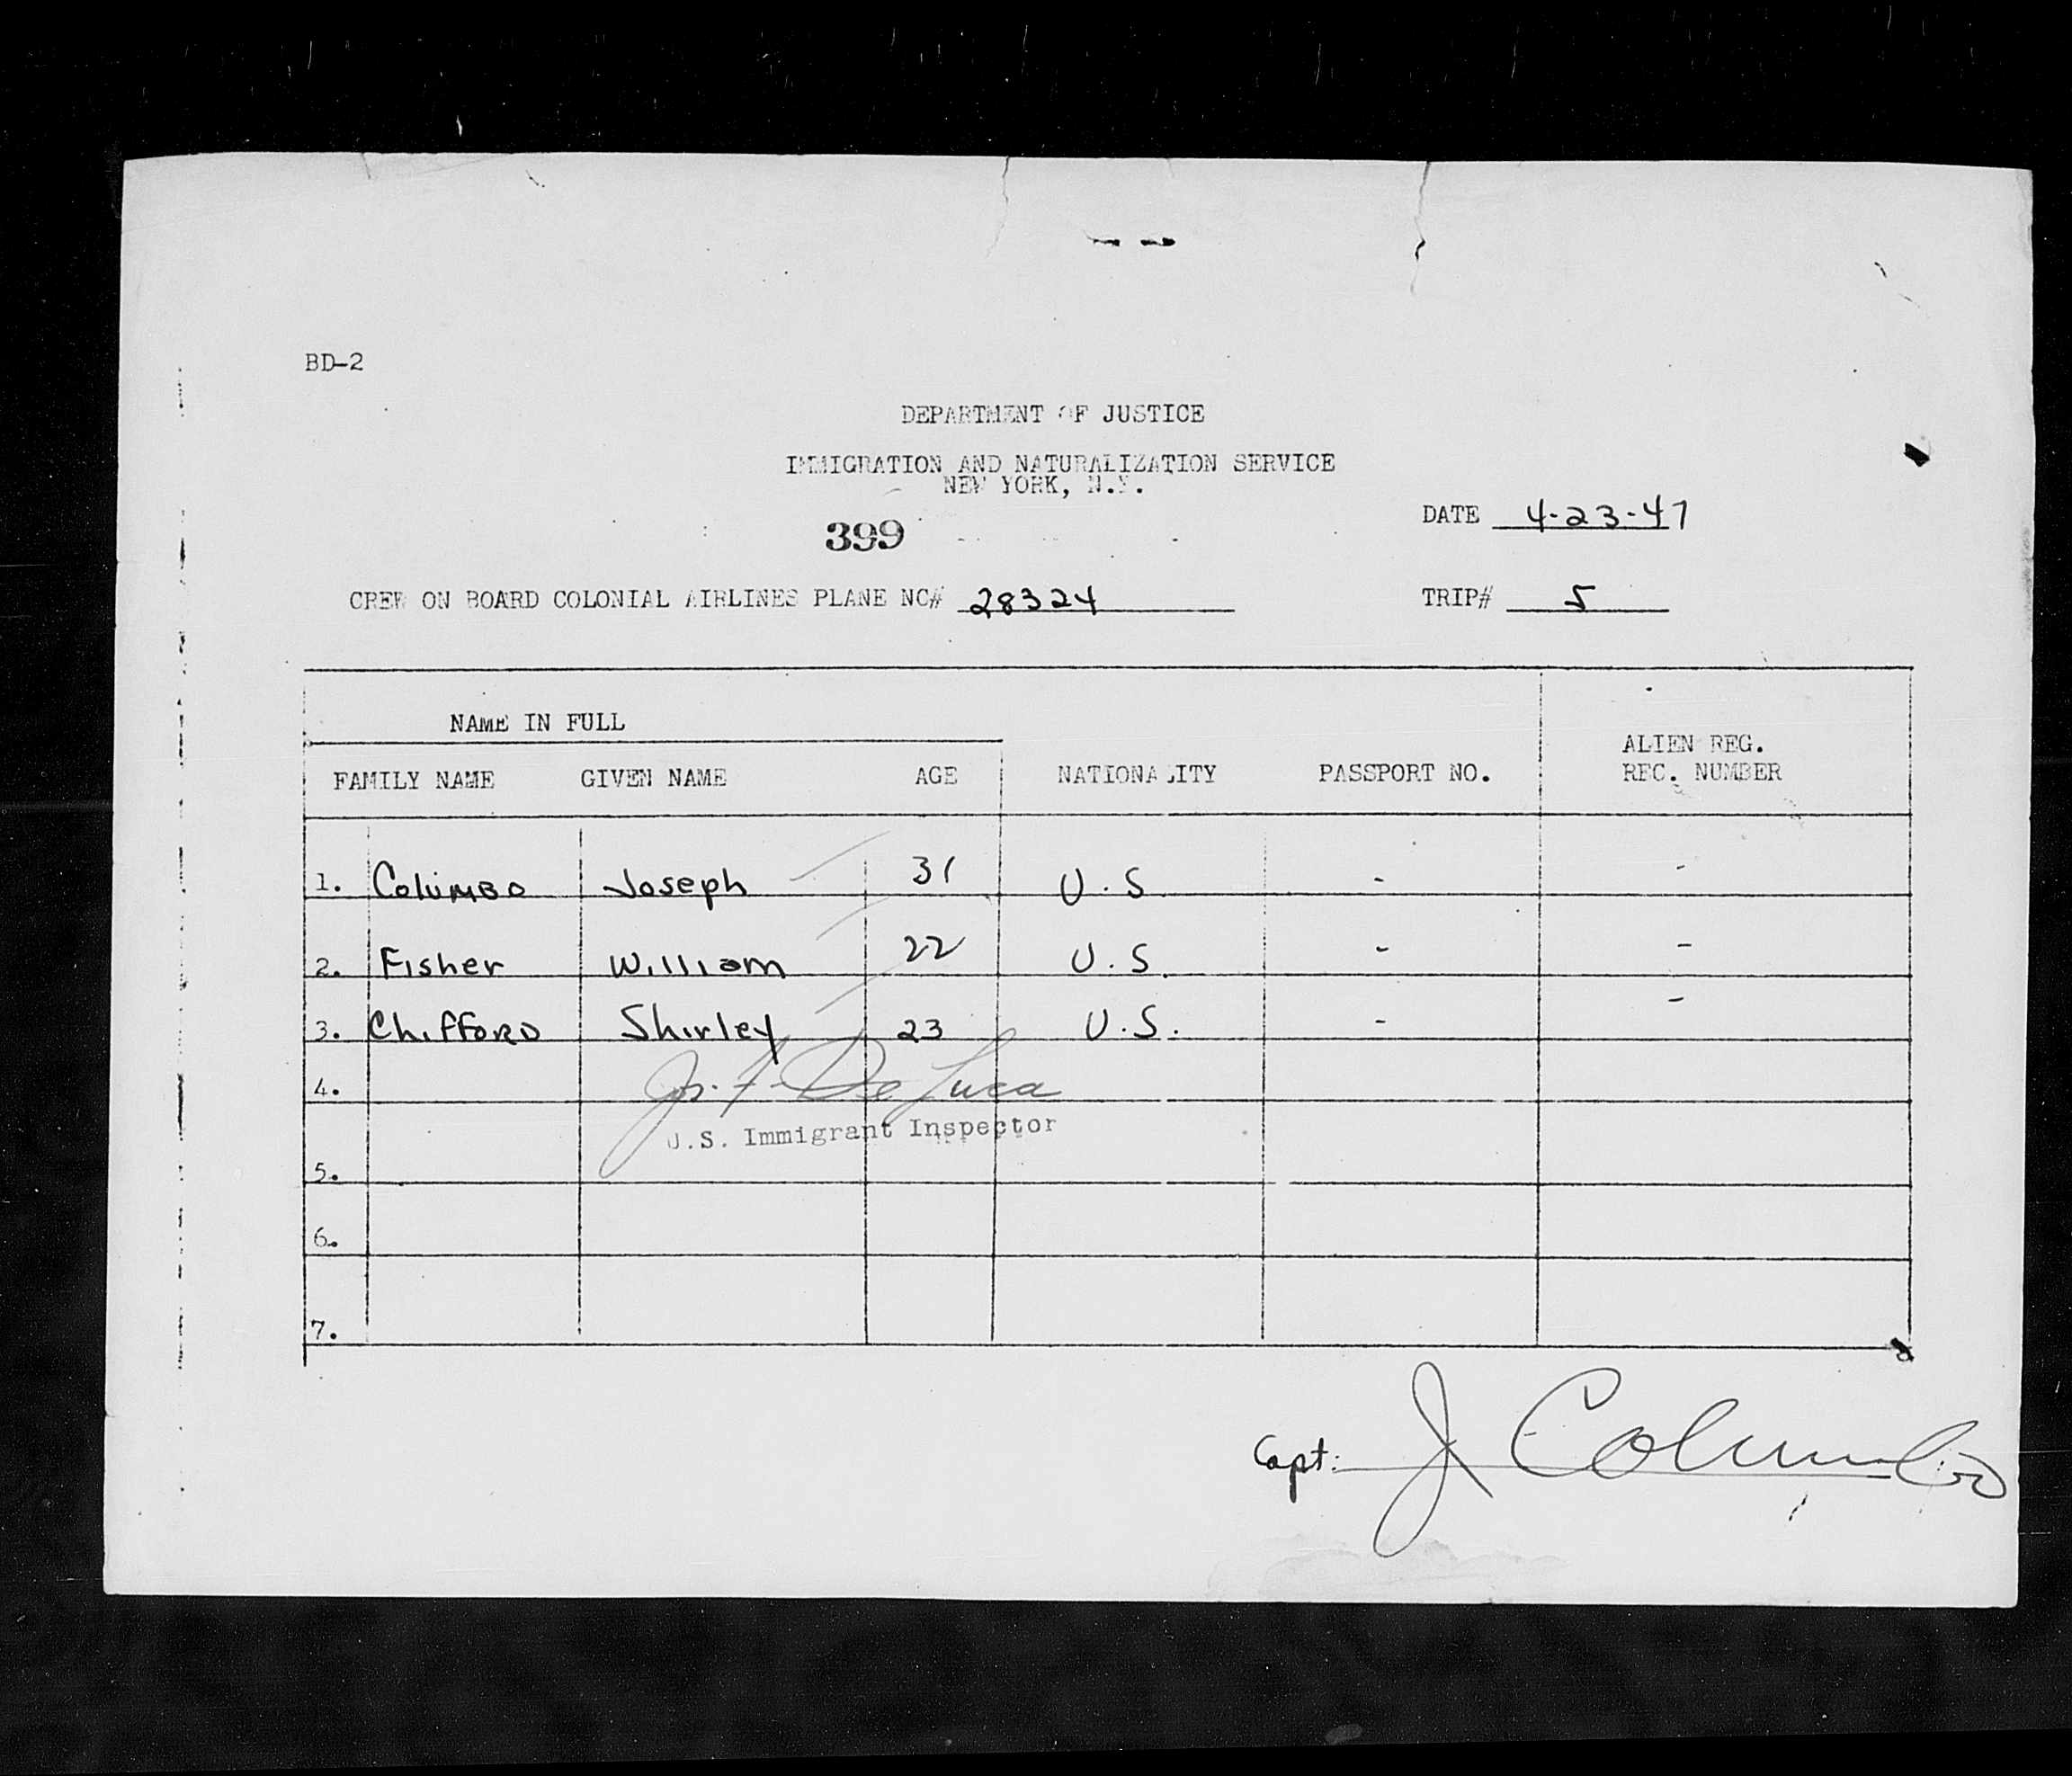 BD-2
DEPARTMENT OF JUSTICE
IMMIGRATION AND NATURALIZATION SERVICE
NEW YORK, N.Y.
DATE 4-23-47
399
CREW ON BOARD COLONIAL AIRLINES PLANE NC# 28324 TRIP# 5
NAME IN FULL
ALIEN REG.
FAMILY NAME GIVEN NAME AGE NATIONALITY PASSPORT NO. REC. NUMBER
1. Columbo Joseph 31 U.S - -
2. Fisher William 22 U.S. - -
3. Chifford Shirley 23 U.S. - -
4. De Luca
U.S. Immigrant Inspector
5.
6.
7.
Capt: J Columbo